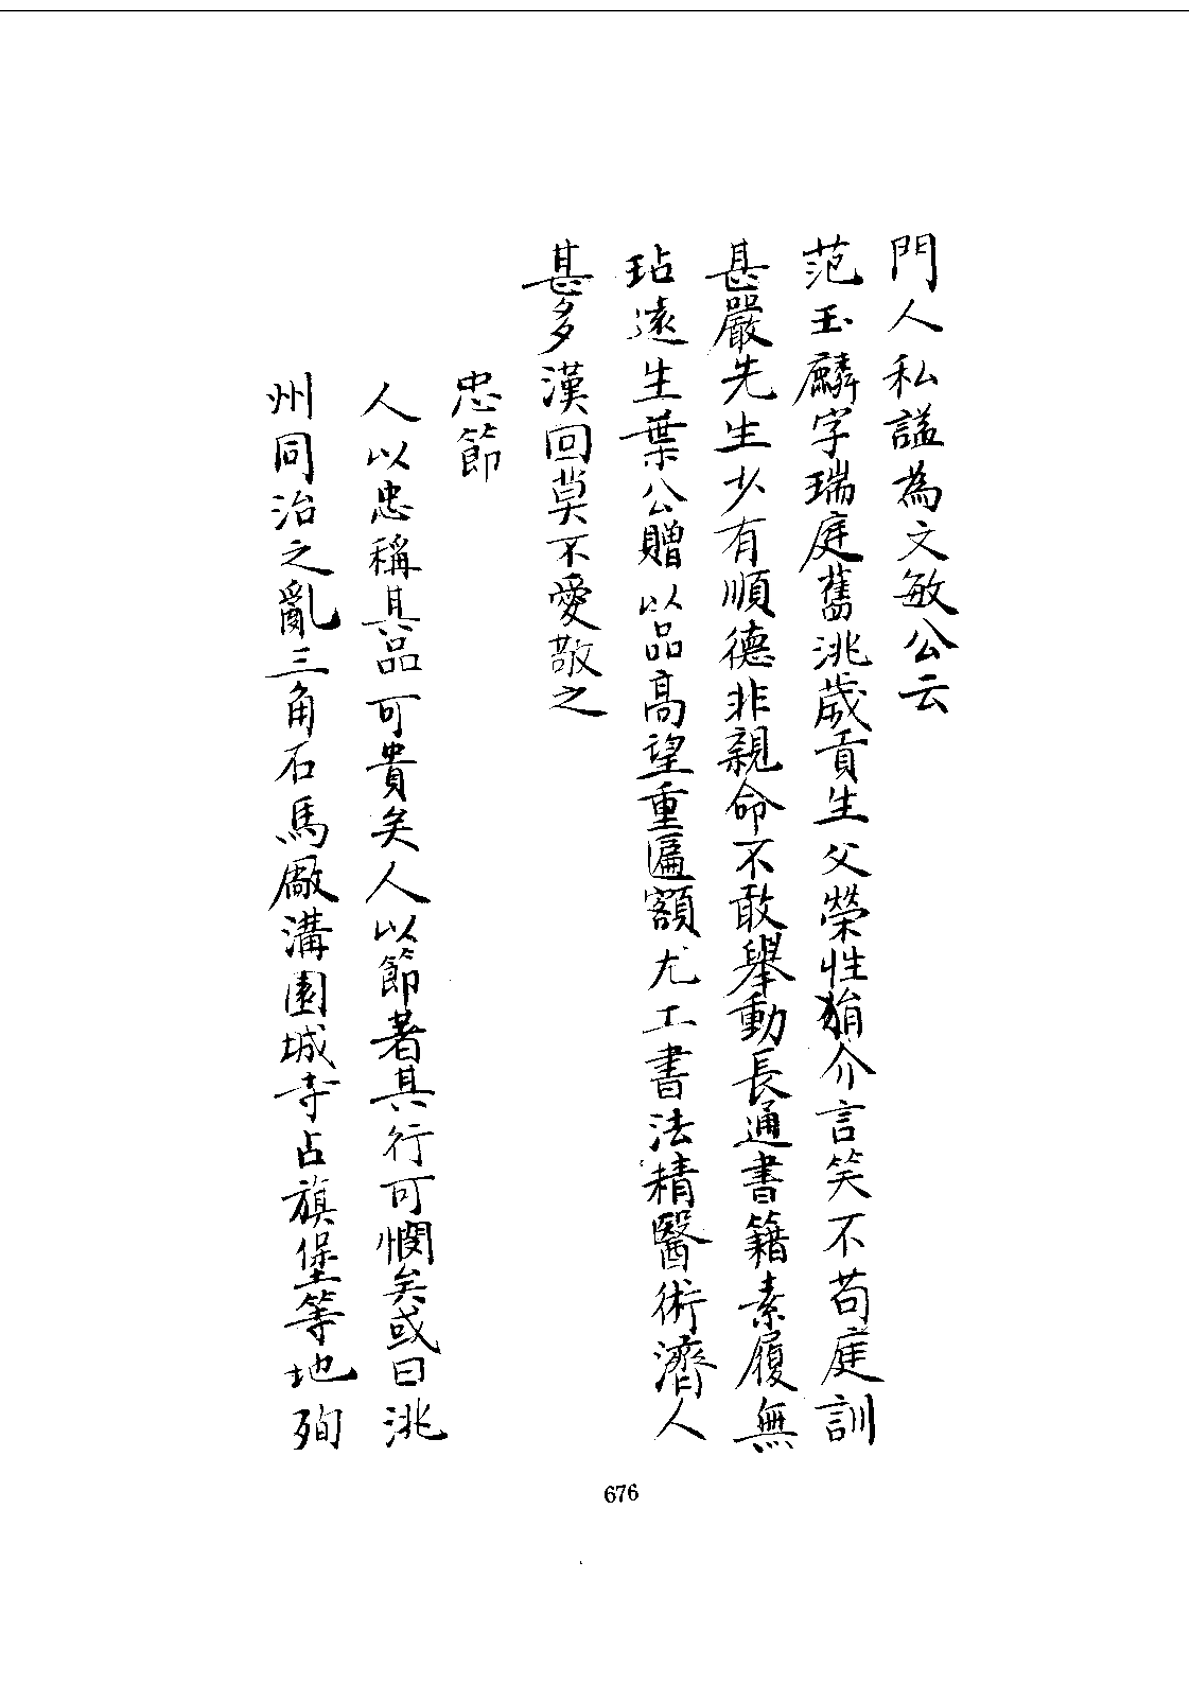 門人私諡為文敏公云
范玉麟字瑞庭舊洮歲貢生父榮性狷介言笑不苟庭訓
甚嚴先生少有順德非親命不敢舉動長通書籍素履無
玷遠生葉公贈以品高望重匾額尤工書法精醫術濟人
甚多漢回莫不愛敬之
忠節
人以忠稱其品可貴矣人以節著其行可憫矣或曰洮
州同治之亂三角石馬廠溝園城寺占旗堡等地殉
676